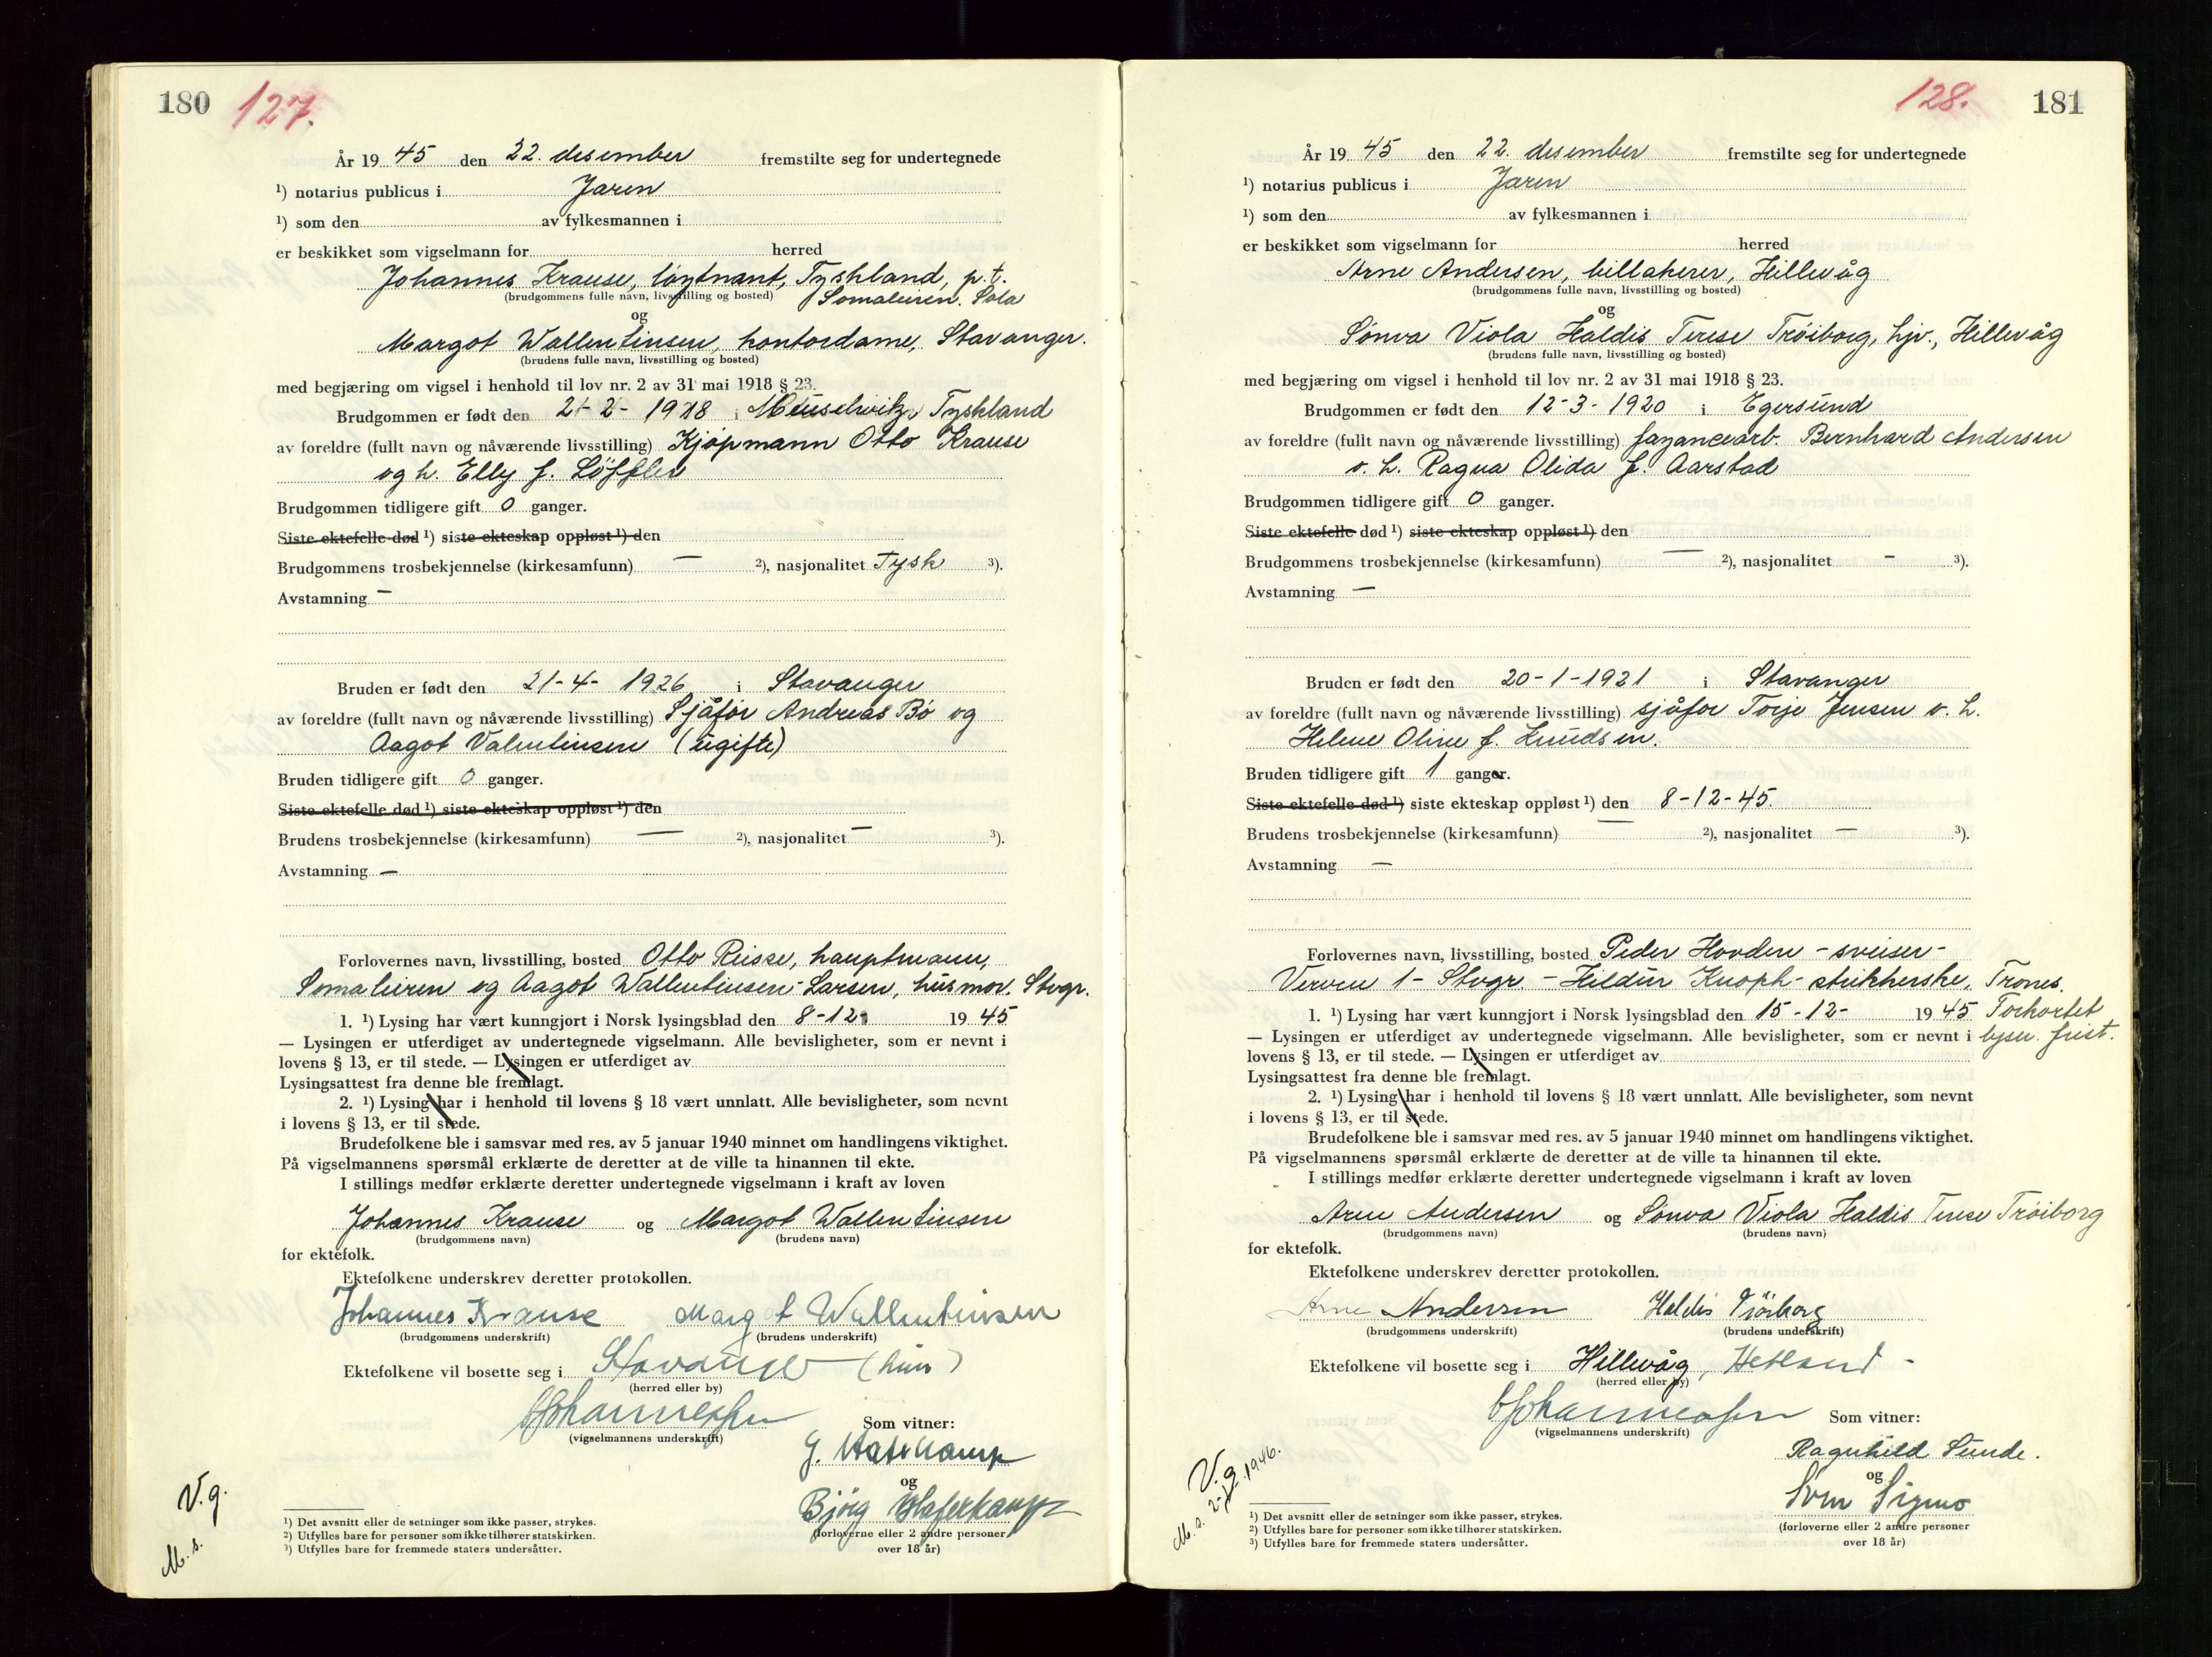 180 127.
År 19 45 den 22. desember fremstilte seg for undertegnede
¹) notarius publicus i Jaren
¹) som den av fylkesmannen i
er beskikket som vigselmann for herred
Johannes Krause, løytnant, Tyskland, p.t.
(brudgommens fulle navn, livsstilling og bosted) Somaleiren. Sola
og
Margot Wallentinsen, kontordame, Stavanger.
(brudens fulle navn, livsstilling og bosted)
med begjæring om vigsel i henhold til lov nr. 2 av 31 mai 1918 § 23.
Brudgommen er født den 21-2- 1918 i Meuselwitz, Tyskland
av foreldre (fullt navn og nåværende livsstilling) Kjøpmann Otto Krause
og h. Elly f. Löffler
Brudgommen tidligere gift 0 ganger.
Siste ektefelle død ¹) siste ekteskap oppløst ¹) den
Brudgommens trosbekjennelse (kirkesamfunn) — ²), nasjonalitet Tysk ³).
Avstamning —
Bruden er født den 21-4- 1926 i Stavanger
av foreldre (fullt navn og nåværende livsstilling) Sjåfør Andreas Bø og
Aagot Valentinsen (ugifte)
Bruden tidligere gift 0 ganger.
Siste ektefelle død ¹) siste ekteskap oppløst ¹) den
Brudens trosbekjennelse (kirkesamfunn) — ²), nasjonalitet — ³).
Avstamning —
Forlovernes navn, livsstilling, bosted Otto Reisse, hauptmann,
Somaleiren og Aagot Wallentinsen-Larsen, husmor. Stvgr.
1. ¹) Lysing har vært kunngjort i Norsk lysingsblad den 8-12 19 45
— Lysingen er utferdiget av undertegnede vigselmann. Alle bevisligheter, som er nevnt i
lovens § 13, er til stede. — Lysingen er utferdiget av
Lysingsattest fra denne ble fremlagt.
2. ¹) Lysing har i henhold til lovens § 18 vært unnlatt. Alle bevisligheter, som nevnt
i lovens § 13, er til stede.
Brudefolkene ble i samsvar med res. av 5 januar 1940 minnet om handlingens viktighet.
På vigselmannens spørsmål erklærte de deretter at de ville ta hinannen til ekte.
I stillings medfør erklærte deretter undertegnede vigselmann i kraft av loven
Johannes Krause og Margot Wallentinsen
(brudgommens navn) (brudens navn)
for ektefolk.
Ektefolkene underskrev deretter protokollen.
Johannes Krause Margot Wallentinsen
(brudgommens underskrift) (brudens underskrift)
Ektefolkene vil bosette seg i Stavanger (hun)
(herred eller by)
Johannessen
(vigselmannens underskrift)
Som vitner:
og
Bjørg Haferkamp
(forloverne eller 2 andre personer
over 18 år)
V.g.
M. s.
¹) Det avsnitt eller de setninger som ikke passer, strykes.
²) Utfylles bare for personer som ikke tilhører statskirken.
³) Utfylles bare for fremmede staters undersåtter.
128. 181
År 19 45 den 22. desember fremstilte seg for undertegnede
¹) notarius publicus i Jaren
¹) som den av fylkesmannen i
er beskikket som vigselmann for herred
Arne Andersen, billakerer, Hillevåg
(brudgommens fulle navn, livsstilling og bosted)
og
Sonva Viola Haldis Terese Trøiborg, hjv., Hillevåg
(brudens fulle navn, livsstilling og bosted)
med begjæring om vigsel i henhold til lov nr. 2 av 31 mai 1918 § 23.
Brudgommen er født den 12-3-1920 i Egersund
av foreldre (fullt navn og nåværende livsstilling) fayancearb. Bernhard Andersen
o. h. Ragna Olida f. Aarstad
Brudgommen tidligere gift 0 ganger.
Siste ektefelle død ¹) siste ekteskap oppløst ¹) den
Brudgommens trosbekjennelse (kirkesamfunn) — ²), nasjonalitet - ³).
Avstamning —
Bruden er født den 20-1-1921 i Stavanger
av foreldre (fullt navn og nåværende livsstilling) sjåfør Torje Jensen o. h.
Helene Oline f. Knudsen.
Bruden tidligere gift 1 ganger.
Siste ektefelle død ¹) siste ekteskap oppløst ¹) den 8-12-45.
Brudens trosbekjennelse (kirkesamfunn) — ²), nasjonalitet — ³).
Avstamning —
Forlovernes navn, livsstilling, bosted Peder Hovden - sveiser-
Verven 1- Stvgr. - Hildur Knoph- strikkerske, Trones.
1. ¹) Lysing har vært kunngjort i Norsk lysingsblad den 15-12- 19 45 Forkortet
— Lysingen er utferdiget av undertegnede vigselmann. Alle bevisligheter, som er nevnt i lysn. frist.
lovens § 13, er til stede. — Lysingen er utferdiget av
Lysingsattest fra denne ble fremlagt.
2. ¹) Lysing har i henhold til lovens § 18 vært unnlatt. Alle bevisligheter, som nevnt
i lovens § 13, er til stede.
Brudefolkene ble i samsvar med res. av 5 januar 1940 minnet om handlingens viktighet.
På vigselmannens spørsmål erklærte de deretter at de ville ta hinannen til ekte.
I stillings medfør erklærte deretter undertegnede vigselmann i kraft av loven
Arne Andersen og Sonva Viola Haldis Terese Trøiborg
(brudgommens navn) (brudens navn)
for ektefolk.
Ektefolkene underskrev deretter protokollen.
Arne Andersen Haldis Trøiborg
(brudgommens underskrift) (brudens underskrift)
Ektefolkene vil bosette seg i Hillevåg, Hetland -
(herred eller by)
Johannessen
(vigselmannens underskrift)
Som vitner:
Ragnhild Sunde.
og
(forloverne eller 2 andre personer
over 18 år)
V.g.
M. s. 1946.
¹) Det avsnitt eller de setninger som ikke passer, strykes.
²) Utfylles bare for personer som ikke tilhører statskirken.
³) Utfylles bare for fremmede staters undersåtter.